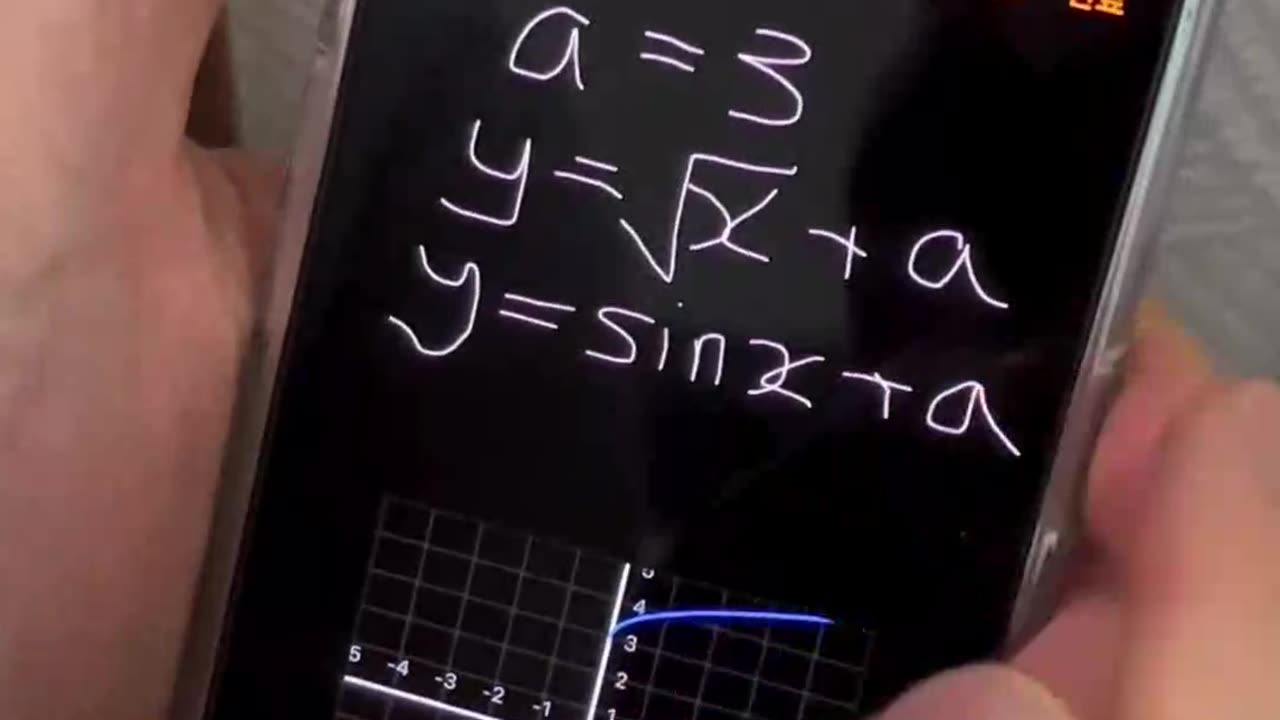 a = 3
y = √x + a
y = sin x + a
4
3
5 -4 -3 -2 -1
2
1